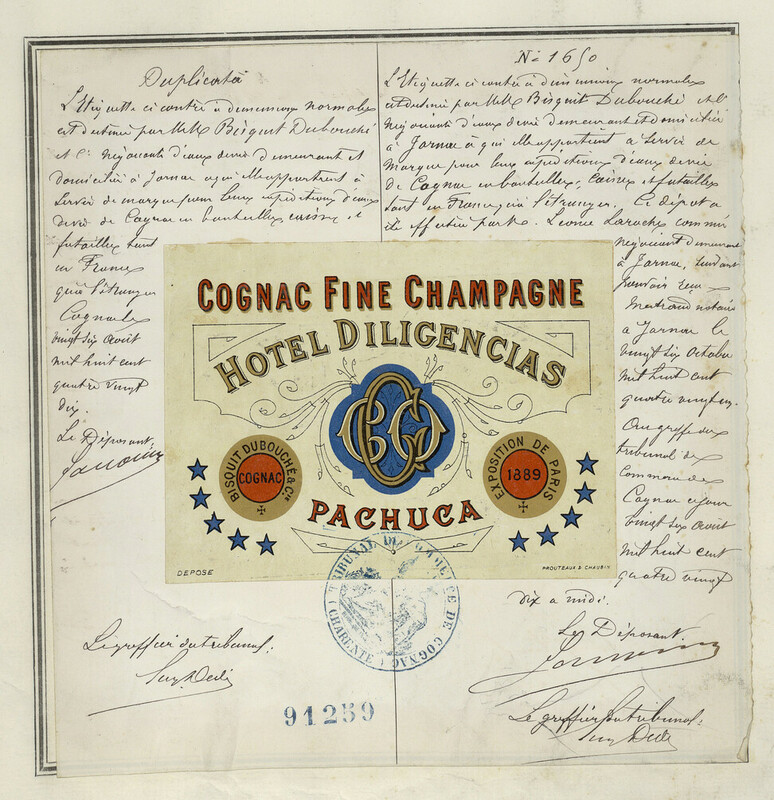 Duplicata
L'Etiquette ci contre à dimensions normales
est destinée par MM Bisquit Dubouché
et Cie Négociants d'eaux de vie demeurant et
domiciliés à Jarnac à qui elle appartient à
servir de marque pour leurs expéditions d'eaux
de vie de Cognac en bouteilles caisses et
futailles tant
en France
qu'à l'étranger
Cognac le
vingt six août
mil huit cent
quatre vingt
dix.
Le Déposant,
Le greffier du tribunal:
No 1650
L'Etiquette ci contre à dimensions normales
est destinée par MM Bisquit Dubouché et Cie
Négociants d'eaux de vie demeurant et domiciliés
à Jarnac à qui elle appartient à servir de
marque pour leurs expéditions d'eaux de vie
de Cognac en bouteilles, caisses et futailles
tant en France qu'à l'étranger. Ce dépot a
été effectué par Mr. Leonce Laroche commis
négociant demeurant
à Jarnac, suivant
pouvoir reçu
Martraud notaire
à Jarnac le
vingt six Octobre
mil huit cent
quatre vingt
Au greffe du
tribunal de
commerce de
Cognac ce jour
vingt six août
mil huit cent
quatre vingt
dix à midi.
Le Déposant
Le greffier du tribunal:
COGNAC FINE CHAMPAGNE
HOTEL DILIGENCIAS
BISQUIT DUBOUCHÉ & Cie
COGNAC
EXPOSITION DE PARIS
1889
PACHUCA
DEPOSE
PROUTEAUX & CHAUBIN
TRIBUNAL DE COMMERCE DE COGNAC (CHARENTE)
91259